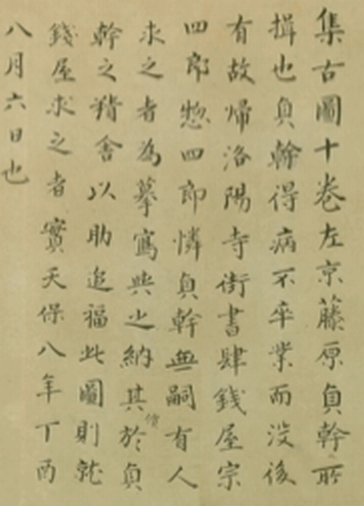 集古圖十卷左京藤原貞幹所
揖也貞幹得病不卒業而没後
有故帰洛陽寺街書肆錢屋宗
四郎惣四郎憐貞幹無嗣有人
求之者為摹寫與之納其價於貞
幹之精舎以助追福此圖則就
錢屋求之者實天保八年丁酉
八月六日也